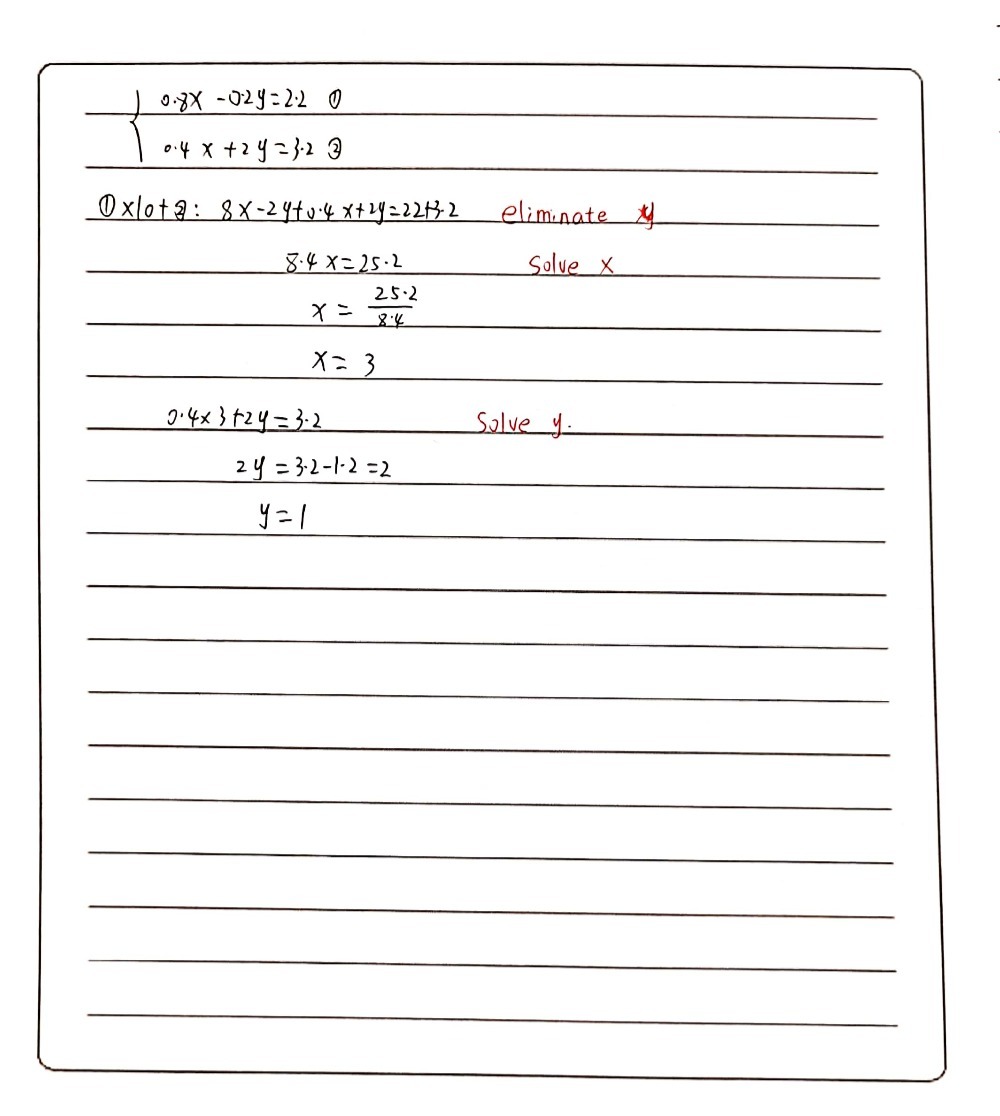 0.8x -0.2y=2.2 ①
0.4 x +2 y =3.2 ②
①x10+②: 8x-2y+0.4 x+2y=22+3.2 eliminate y
8.4 x=25.2 Solve x
x = 25.2/8.4
x= 3
0.4x3+2y=3.2 Solve y.
2y =3.2-1.2 =2
y=1